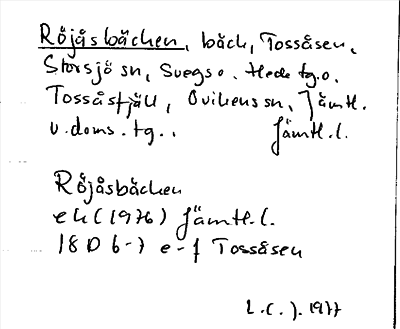 Röjåsbäcken, bäck, Tossåsen,
Storsjö sn, Svegs o. Hede tg.o.
Tossåsfjäll, Ovikens sn, Jämtl.
v. doms. tg., Jämtl. l.
Röjåsbäcken
ek (1976) Jämtl. l.
18D 6-7 e-f Tossåsen
L.C.J. 1977